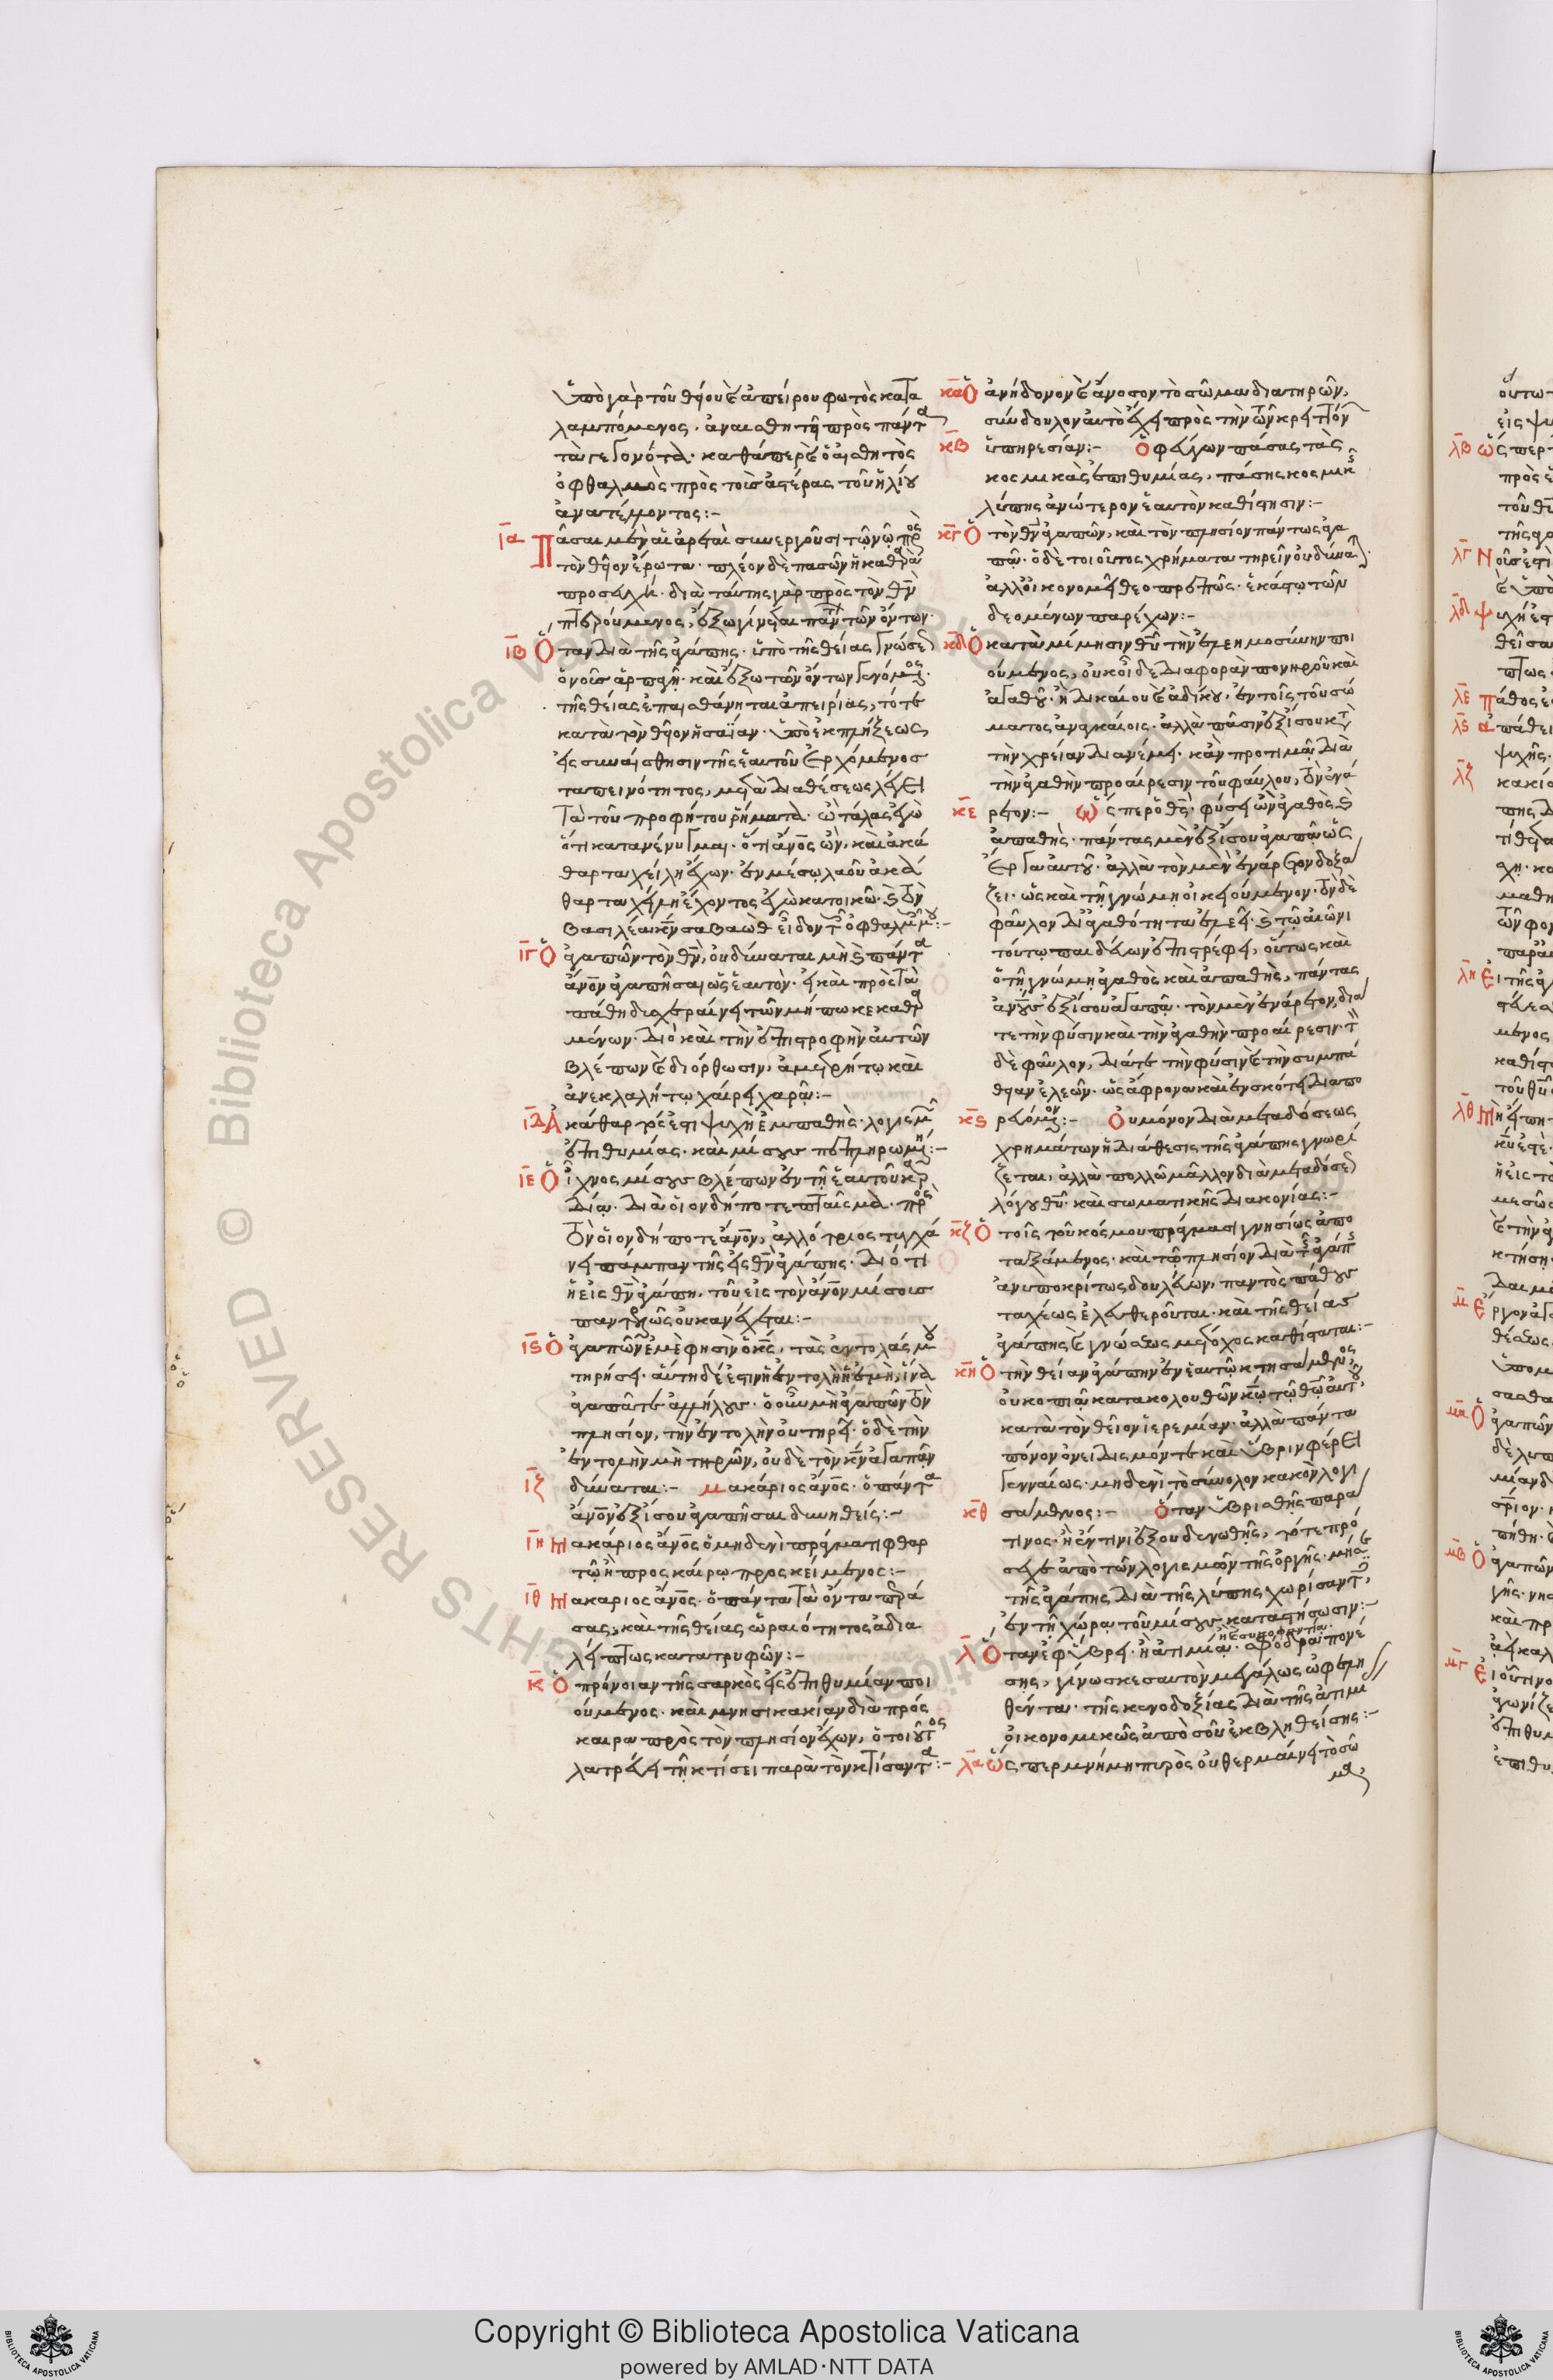 Ὑπὸ γὰρ τοῦ θείου καὶ ἀπείρου φωτὸς κατα
λαμπόμενος, ἀναισθητεῖ πρὸς πάντα
τὰ γεγονότα· καθάπερ καὶ ὁ αἰσθητὸς
ὀφθαλμὸς πρὸς τοὺς ἀστέρας τοῦ ἡλίου
ἀνατέλλοντος:-
ια Πᾶσαι μὲν αἱ ἀρεταὶ συνεργοῦσι τῷ νῷ πρὸς
τὸν θεῖον ἔρωτα· πλέον δὲ πασῶν ἡ καθαρὰ
προσευχή· διὰ ταύτης γὰρ πρὸς τὸν θν
πτερούμενος, ἔξω γίνεται πάντων τῶν ὄντων·
ιβ Ὅταν διὰ τῆς ἀγάπης ὑπὸ τῆς θείας γνώσεως
ὁ νοῦς ἁρπαγῇ· καὶ ἔξω τῶν ὄντων γενόμενος·
τῆς θείας ἐπαισθάνηται ἀπειρίας, τότε
κατὰ τὸν θεῖον ἡσαΐαν· ὑπὸ ἐκπλήξεως
εἰς συναίσθησιν τῆς ἑαυτοῦ ἐρχόμενος
ταπεινότητος, μετὰ διαθέσεως λέγει
τὰ τοῦ προφήτου ῥήματα· ὢ τάλας ἐγὼ
ὅτι κατανένυγμαι· ὅτι ἄνος ὢν, καὶ ἀκά
θαρτα χείλη ἔχων· ἐν μέσῳ λαοῦ ἀκά
θαρτα χείλη ἔχοντος ἐγὼ κατοικῶ· καὶ τὸν
βασιλέα κν σαβαὼθ εἶδον τοῖς ὀφθαλμοῖς μου:-
ιγ Ὁ ἀγαπῶν τὸν θν, οὐ δύναται μὴ καὶ πάντα
ἄνον ἀγαπῆσαι ὡς ἑαυτόν· εἰ καὶ πρὸς τὰ
πάθη δυσχεραίνει τῶν μήπω κεκαθαρ
μένων· διὸ καὶ τὴν ἐπιστροφὴν αὐτῶν
βλέπων καὶ διόρθωσιν, ἀμετρήτῳ καὶ
ἀνεκλαλήτῳ χαίρει χαρᾷ:-
ιδ Ἀκάθαρτός ἐστι ψυχὴ ἐμπαθὴς· λογισμῶν
ἐπιθυμίας· καὶ μίσους πεπληρωμένη:-
ιε Ὁ ἴχνος μίσους βλέπων ἐν τῇ ἑαυτοῦ καρ
δίᾳ· διὰ οἱονδήποτε πταῖσμα· πρὸς
τὸν οἱονδήποτε ἄνον, ἀλλότριος τυγχά
νει πάμπαν τῆς εἰς θν ἀγάπης· διότι
ἡ εἰς θν ἀγάπη, τοῦ εἰς τὸν ἄνον μίσους
παντελῶς οὐκ ἀνέχεται:-
ις Ὁ ἀγαπῶν ἐμὲ φησὶν ὁ κς, τὰς ἐντολάς μου
τηρήσει· αὕτη δέ ἐστιν ἡ ἐντολὴ ἡ ἐμὴ, ἵνα
ἀγαπᾶτε ἀλλήλους· ὁ οὖν μὴ ἀγαπῶν τὸν
πλησίον, τὴν ἐντολὴν οὐ τηρεῖ· ὁ δὲ τὴν
ἐντολὴν μὴ τηρῶν, οὐδὲ τὸν κν ἀγαπᾶν
ιζ δύναται:- Μακάριος ἄνος· ὁ πάντα
ἄνον ἐξίσου ἀγαπῆσαι δυνηθείς:-
ιη Μακάριος ἄνος ὁ μηδενὶ πράγματι φθαρ
τῷ ἢ προσκαίρῳ προσκείμενος:-
ιθ Μακαριος ἄνος· ὁ πάντα τὰ ὄντα περά
σας, καὶ τῆς θείας ὡραιότητος ἀδια
λείπτως κατατρυφῶν:-
κ Ὁ πρόνοιαν τῆς σαρκὸς εἰς ἐπιθυμίαν ποι
ούμενος· καὶ μνησικακίαν διὰ πρόσ
καιρα πρὸς τὸν πλησίον ἔχων, ὁ τοιοῦτος
λατρεύει τῇ κτίσει παρὰ τὸν κτίσαντα:-
κα Ὁ ἀνήδονον καὶ ἄνοσον τὸ σῶμα διατηρῶν,
σύνδουλον αὐτὸ ἔχει πρὸς τὴν τῶν κρειττόν
κβ ὑπηρεσίαν:- Ὁ φεύγων πάσας τὰς
κοσμικὰς ἐπιθυμίας, πάσης κοσμικῆς
λύπης ἀνώτερον ἑαυτὸν καθίστησιν:-
κγ Ὁ τὸν θν ἀγαπῶν, καὶ τὸν πλησίον πάντως ἀγα
πᾷ· ὁ δὲ τοιοῦτος χρήματα τηρεῖν οὐ δύναται·
ἀλλ᾽ οἰκονομεῖ θεοπρεπῶς· ἑκάστῳ τῶν
δεομένων παρέχων:-
κδ Ὁ κατὰ μίμησιν θυ τὴν ἐλεημοσύνην ποι
ούμενος, οὐκ οἶδε διαφορὰν πονηροῦ καὶ
ἀγαθοῦ· ἢ δικαίου καὶ ἀδίκου, ἐν τοῖς τοῦ σώ
ματος ἀναγκαίοις· ἀλλὰ πᾶσιν ἐξίσου κατὰ
τὴν χρείαν διανέμει· κἂν προτιμᾷ διὰ
τὴν ἀγαθὴν προαίρεσιν τοῦ φαύλου, τὸν ἐνά
κε ρετον:- Ὥσπερ ὁ θς· φύσει ὢν ἀγαθὸς καὶ
ἀπαθὴς· πάντας μὲν ἐξίσου ἀγαπᾷ ὡς
ἔργα αὐτοῦ· ἀλλὰ τὸν μὲν ἐνάρετον δοξά
ζει· ὡς καὶ τῇ γνώμῃ οἰκειούμενον· τὸν δὲ
φαῦλον δι᾽ ἀγαθότητα ἐλεεῖ· καὶ τῷ αἰῶνι
τούτῳ παιδεύων ἐπιστρέφει, οὕτως καὶ
ὁ τῇ γνώμῃ ἀγαθὸς καὶ ἀπαθής, πάντας
ἀνους ἐξίσου ἀγαπᾷ· τὸν μὲν ἐνάρετον, διά
τε τὴν φύσιν καὶ τὴν ἀγαθὴν προαίρεσιν· τὸν
δὲ φαῦλον, διά τε τὴν φύσιν καὶ τὴν συμπά
θειαν ἐλεῶν· ὡς ἄφρονα καὶ ἐν σκότει διαπο
κς ρευόμενον:- Οὐ μόνον διὰ μεταδόσεως
χρημάτων ἡ διάθεσις τῆς ἀγάπης γνωρί
ζεται, ἀλλὰ πολλῶ μᾶλλον διὰ μεταδόσεως
λόγου θυ· καὶ σωματικῆς διακονίας:-
κζ Ὁ τοῖς τοῦ κόσμου πράγμασι γνησίως ἀπο
ταξάμενος· καὶ τῷ πλησίον διὰ τῆς ἀγάπης
ἀνυποκρίτως δουλεύων, παντὸς πάθους
ταχέως ἐλευθεροῦται· καὶ τῆς θείας
ἀγάπης καὶ γνώσεως μέτοχος καθίσταται:-
κη Ὁ τὴν θείαν ἀγάπην ἐν ἑαυτῷ κτησάμενος,
οὐ κοπιᾷ κατακολουθῶν κω τῷ θω αὐτοῦ,
κατὰ τὸν θεῖον ἱερεμίαν· ἀλλὰ πάντα
πόνον ὀνειδισμόν τε καὶ ὕβριν φέρει
γενναίως· μηδενὶ τὸ σύνολον κακὸν λογι
κθ σάμενος:- Ὅταν ὑβρισθῇς παρά
τινος· ἢ ἔν τινι ἐξουδενωθῇς, τότε πρό
σεχε ἀπὸ τῶν λογισμῶν τῆς ὀργῆς· μήπως
τῆς ἀγάπης διὰ τῆς λύπης χωρίσαντες,
ἐν τῇ χώρᾳ τοῦ μίσους καταστήσωσιν:-
λ Ὅταν ἐφ᾽ ὕβρει· ἢ ἀτιμίᾳ· σφόδρα πονέ
σῃς, γίνωσκε σαυτὸν μεγάλως ὠφελη
θέντα· τῆς κενοδοξίας διὰ τῆς ἀτιμί
οἰκονομικῶς ἀπὸ σοῦ ἐκβληθείσης:-
λα Ὥσπερ μνήμη πυρὸς οὐ θερμαίνει τὸ σῶ
μα,
Copyright © Biblioteca Apostolica Vaticana
powered by AMLAD·NTT DATA